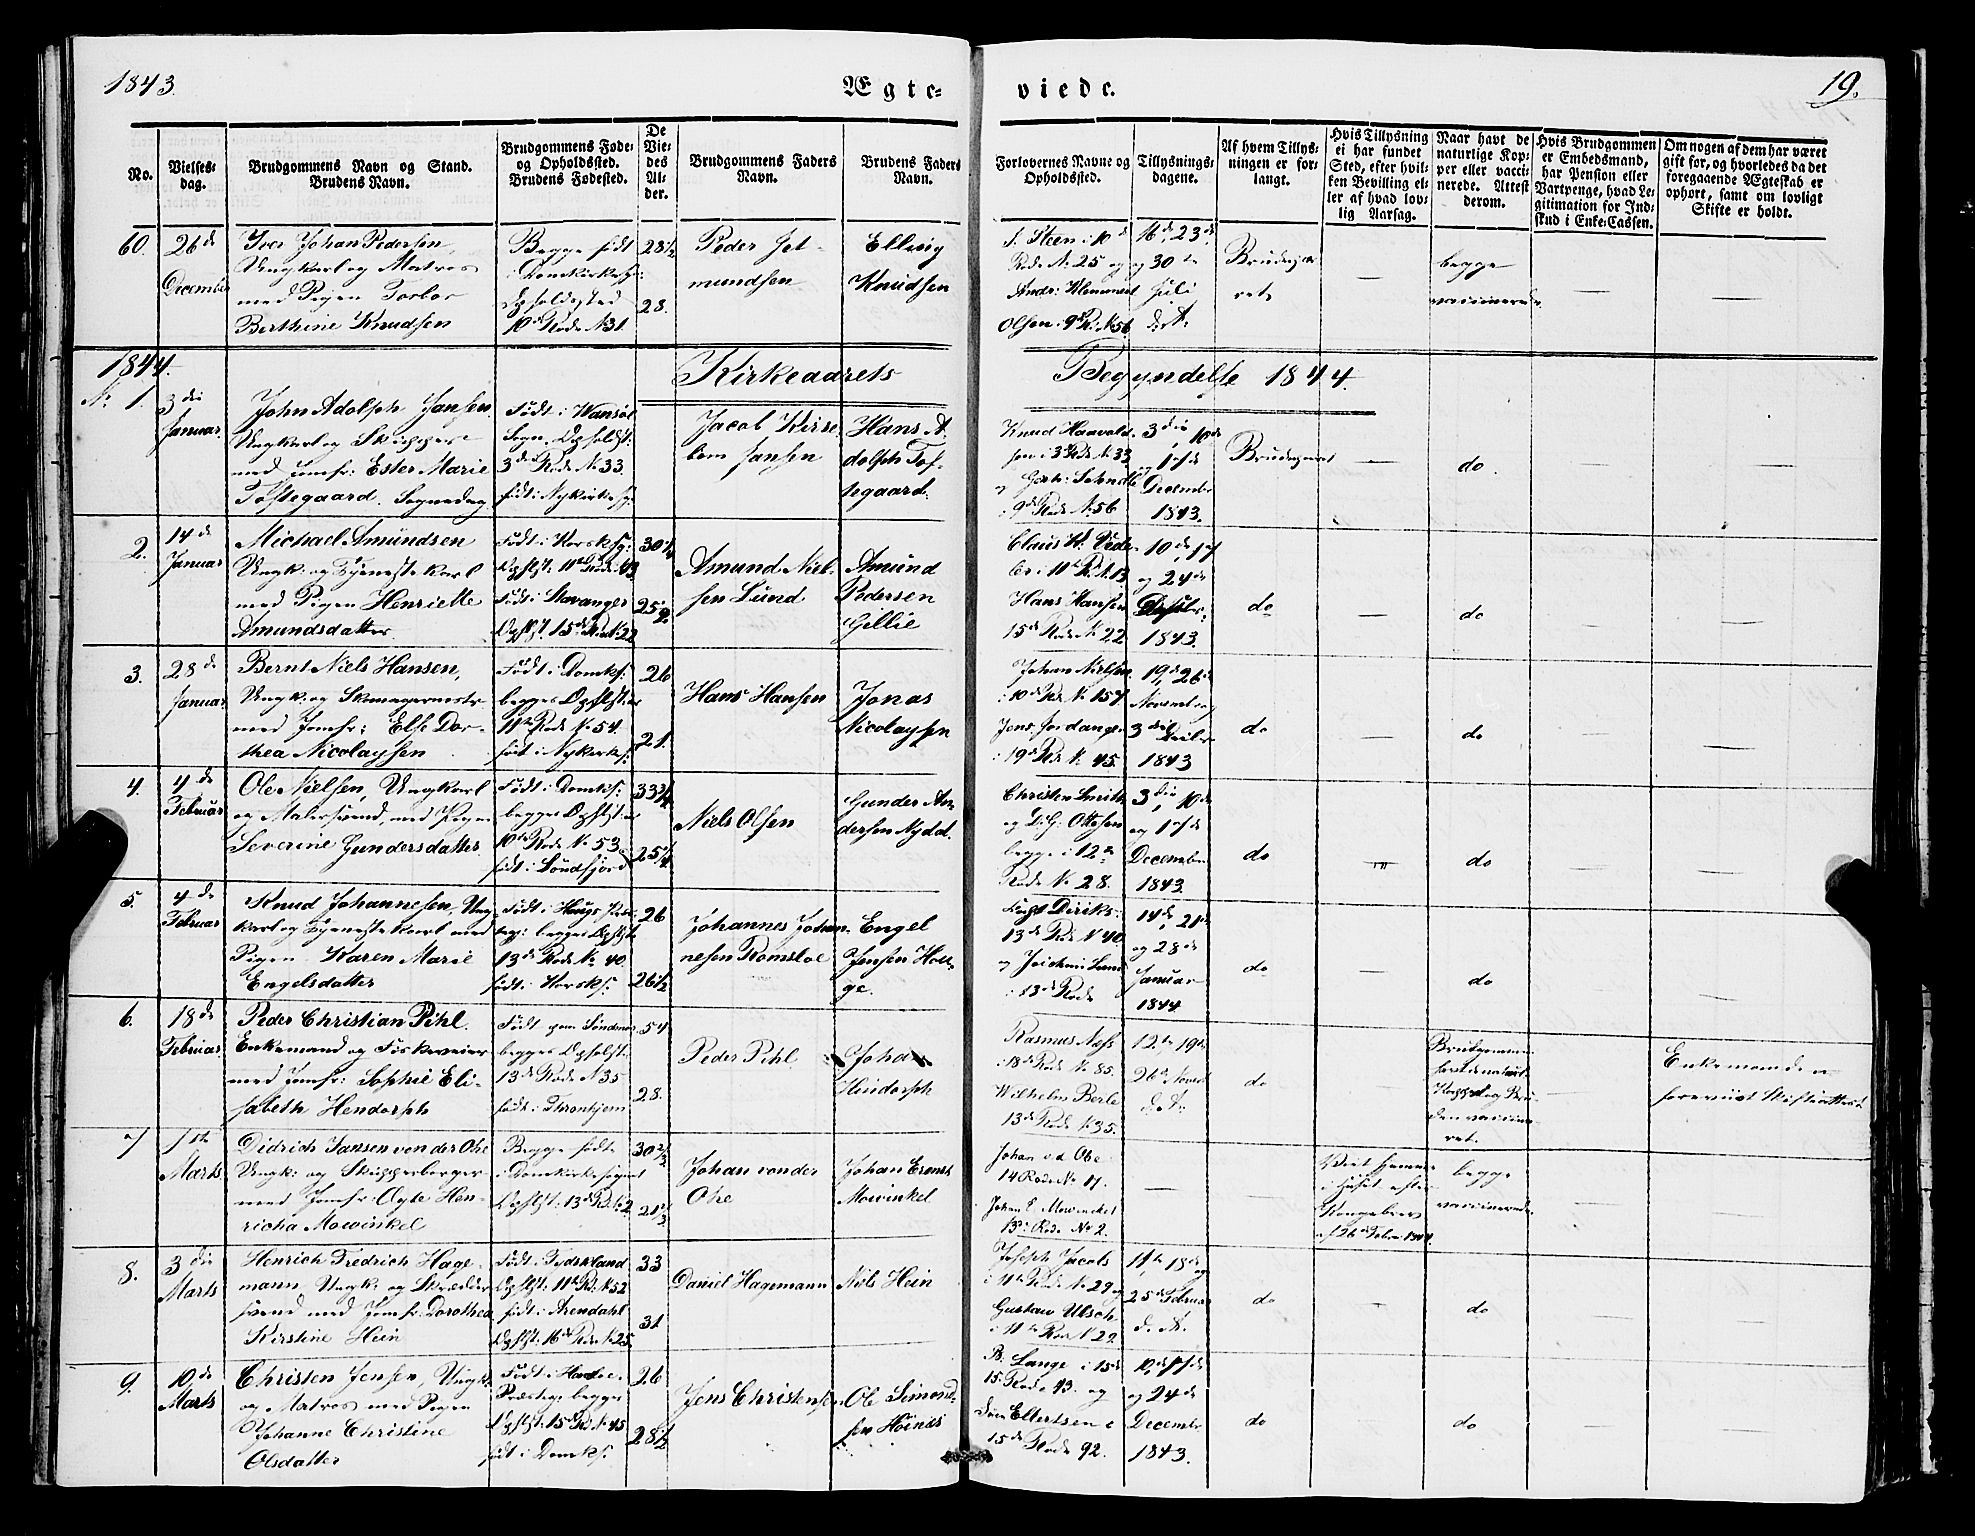 1843.
Ægte-
viede.
19.
No.
Vielses-
dag.
Brudgommens Navn og Stand.
Brudens Navn.
Brudgommens Føde-
og Opholdssted.
Brudens Fødested.
De
Vie-
des
Al-
der.
Brudgommens Faders
Navn.
Brudens Faders
Navn.
Forlovernes Navne og
Opholdssted.
Tillysnings-
dagene.
Af hvem Tillys-
ningen er for-
langt.
Hvis Tillysning
ei har fundet
Sted, efter hvil-
ken Bevilling el-
ler af hvad lov-
lig Aarsag.
Naar havt de
naturlige Kop-
per eller vacci-
nerede. Attest
derom.
Hvis Brudgommen
er Embedsmand,
har Pension eller
Vartpenge, hvad Le-
gitimation for Ind-
skud i Enke-Cassen.
Om nogen af dem har været
gift før, og hvorledes da det
foregaaende Ægteskab er
ophørt, samt om lovligt
Skifte er holdt.
60.
26de
December
Iver Johan Pedersen,
Ungkarl og Matros
med Pigen Torbor
Berthine Knudsen
Begge født
i Domkirkesg:
Opholdssted
10de Rode No 31.
28½
28.
Peder Jet-
mundsen
Ellwig
Knudsen
S. Steen i 10de
Rode No 25 og
Andr: Klemment
Olsen i 9de R: No 56
16de, 23de,
og 30te
Juli
d. A.
Brudepar
ret
begge
vaccinerede
1844.
Kirkeaarets
Begyndelse 1844.
No 1.
3die
Januar
John Adolph Jansen
Ungkarl og Skipper
med Jomfr: Ester Marie
Tostegaard. Søgnedag
Født i
Sogn. Opholdst:
3die Rode No 33
født i Nykirkesg:
Jacob Kirse
bom Jansen
Hans A-
dolph Tos-
tegaard.
Knud Haavold-
sen i 3die Rode No 33
i 9de Rode No 56
3die, 10de
og 17de
December
1843.
Brudeparret
do.
2.
14de
Januar
Michael Amundsen
Ungk: og Tjenestekarl
med Pigen Henriette
Amundsdatter
Født i Korsksg:
Opholst: 11te Rode: 43
Født i Stavanger
Opholst: 15de Rode No 22
30¼
25½
Amund Niel-
sen Lund
Amund
Pedersen
Gillie
Hans Hansen
15de Rode No 22
10de, 17
og 24de
Decbr:
1843.
do
do
3.
28de
Januar
Bernt Niels Hansen,
Ungk: og Skomagermester
med Jomfr: Else Dor-
thea Nicolaysen
Født i Domks:
begges Opholst: er
11te Rode No 54.
født i Nykirkes:
26
21.
Hans Hansen
Jonas
Nicolaysen
Johan Nielsen
i 10de Rode No 157
i 19de Rode No 45.
19de, 26de
Novembr og
3die Decbr
1843
do
do
4.
4de
Februar
Ole Nielsen, Ungkarl
og Malersvend, med Pigen
Severine Gundersdatter.
Født i Domks:
begges Opholst: er
10de Rode No 53.
født i Søndfjord
33¾
25¼
Niels Olsen
Gunder An-
dersen Nydal.
Christen Smith
og D: G: Ottesen
begge i 12te
Rode No 28.
3die, 10de
og 17de
December
1843.
do
"
do
5.
4de
Februar
Knud Johannesen, Ung-
karl og Tjenestekarl med
Pigen Karen Marie
Engelsdatter
Født i Hougs Præs-
teg: begges Opholst:
13de Rode No 40.
født i Korsks:
26
26½
Johannes Johan-
nesen Romsloe
Engel
Jensen Hol-
ge.
13de Rode No 40.
i 13de Rode
14de, 21de
og 28de
Januar
1844.
do
do
6.
18de
Februar
Peder Christian Pihl.
Enkemand og Fiskeveier
med Jomfr: Sophie Eli-
sabeth Hendorph
Født paa Søndmør
begges Opholst:
13de Rode No 35
født i Thronhjem
54
28.
Peder Pihl
Johan
Hindorph
Rasmus Næss
i 18de Rode No 85.
Wilhelm Berle
13de Rode No 35.
12te, 19de
26de Novbr
d. A:
do
Brudgommen
havt de naturl:
Kopper og Bru-
den vaccine-
ret.
Enkemanden
foreviist Skifteattest
7
1ste
Marts
Didrich Jansen von der Ohe
Ungk: og Skipperborger
med Jomfr: Ogte Hen-
richa Mowinkel
Begge fødte
i Domkirkesognet
Opholst: 13de Rode No 2
30½
21½
Johan von der
Ohe
Johan Ernst
Mowinkel
Johan v. d. Ohe
14 Rode No 11.
Johan E. Mowinckel
13de Rode No 2.
Viet hjemme
i Huset efter
Kongebrev
af 26de Febr: 1844.
begge
vaccinerede
8.
3die
Marts
Henrich Fredrich Hage-
mann, Ungk: og Skrædder
svend med Jomfr. Dorothea
Kirstine Hein
Født i Tydskland
Opholst: 11te R: No 52
født i Arendahl
Opholst: 16de Rode No 25.
33
31
Daniel Hagemann
Nils Hein
Joseph Jacobs
i 11te Rode No 29 og
Gustaw Ulsch
i 11te Rode No 29
11te, 18de og
25de Februar
d. A.
do
do
9.
10de
Marts
Christen Jensen, Ungk:
og Matros med Pigen
Johanne Christine
Olsdatter
Præsteg: begges
Opholst: 15de Rd: No 45
født i Domks:
26
28½
Jens Christensen
Ole Simond-
sen Høinæs
B. Lange i 15de
15. Rode 43. og
15de Rode 92.
10de, 17de
og 24de
December
1843.
do
do